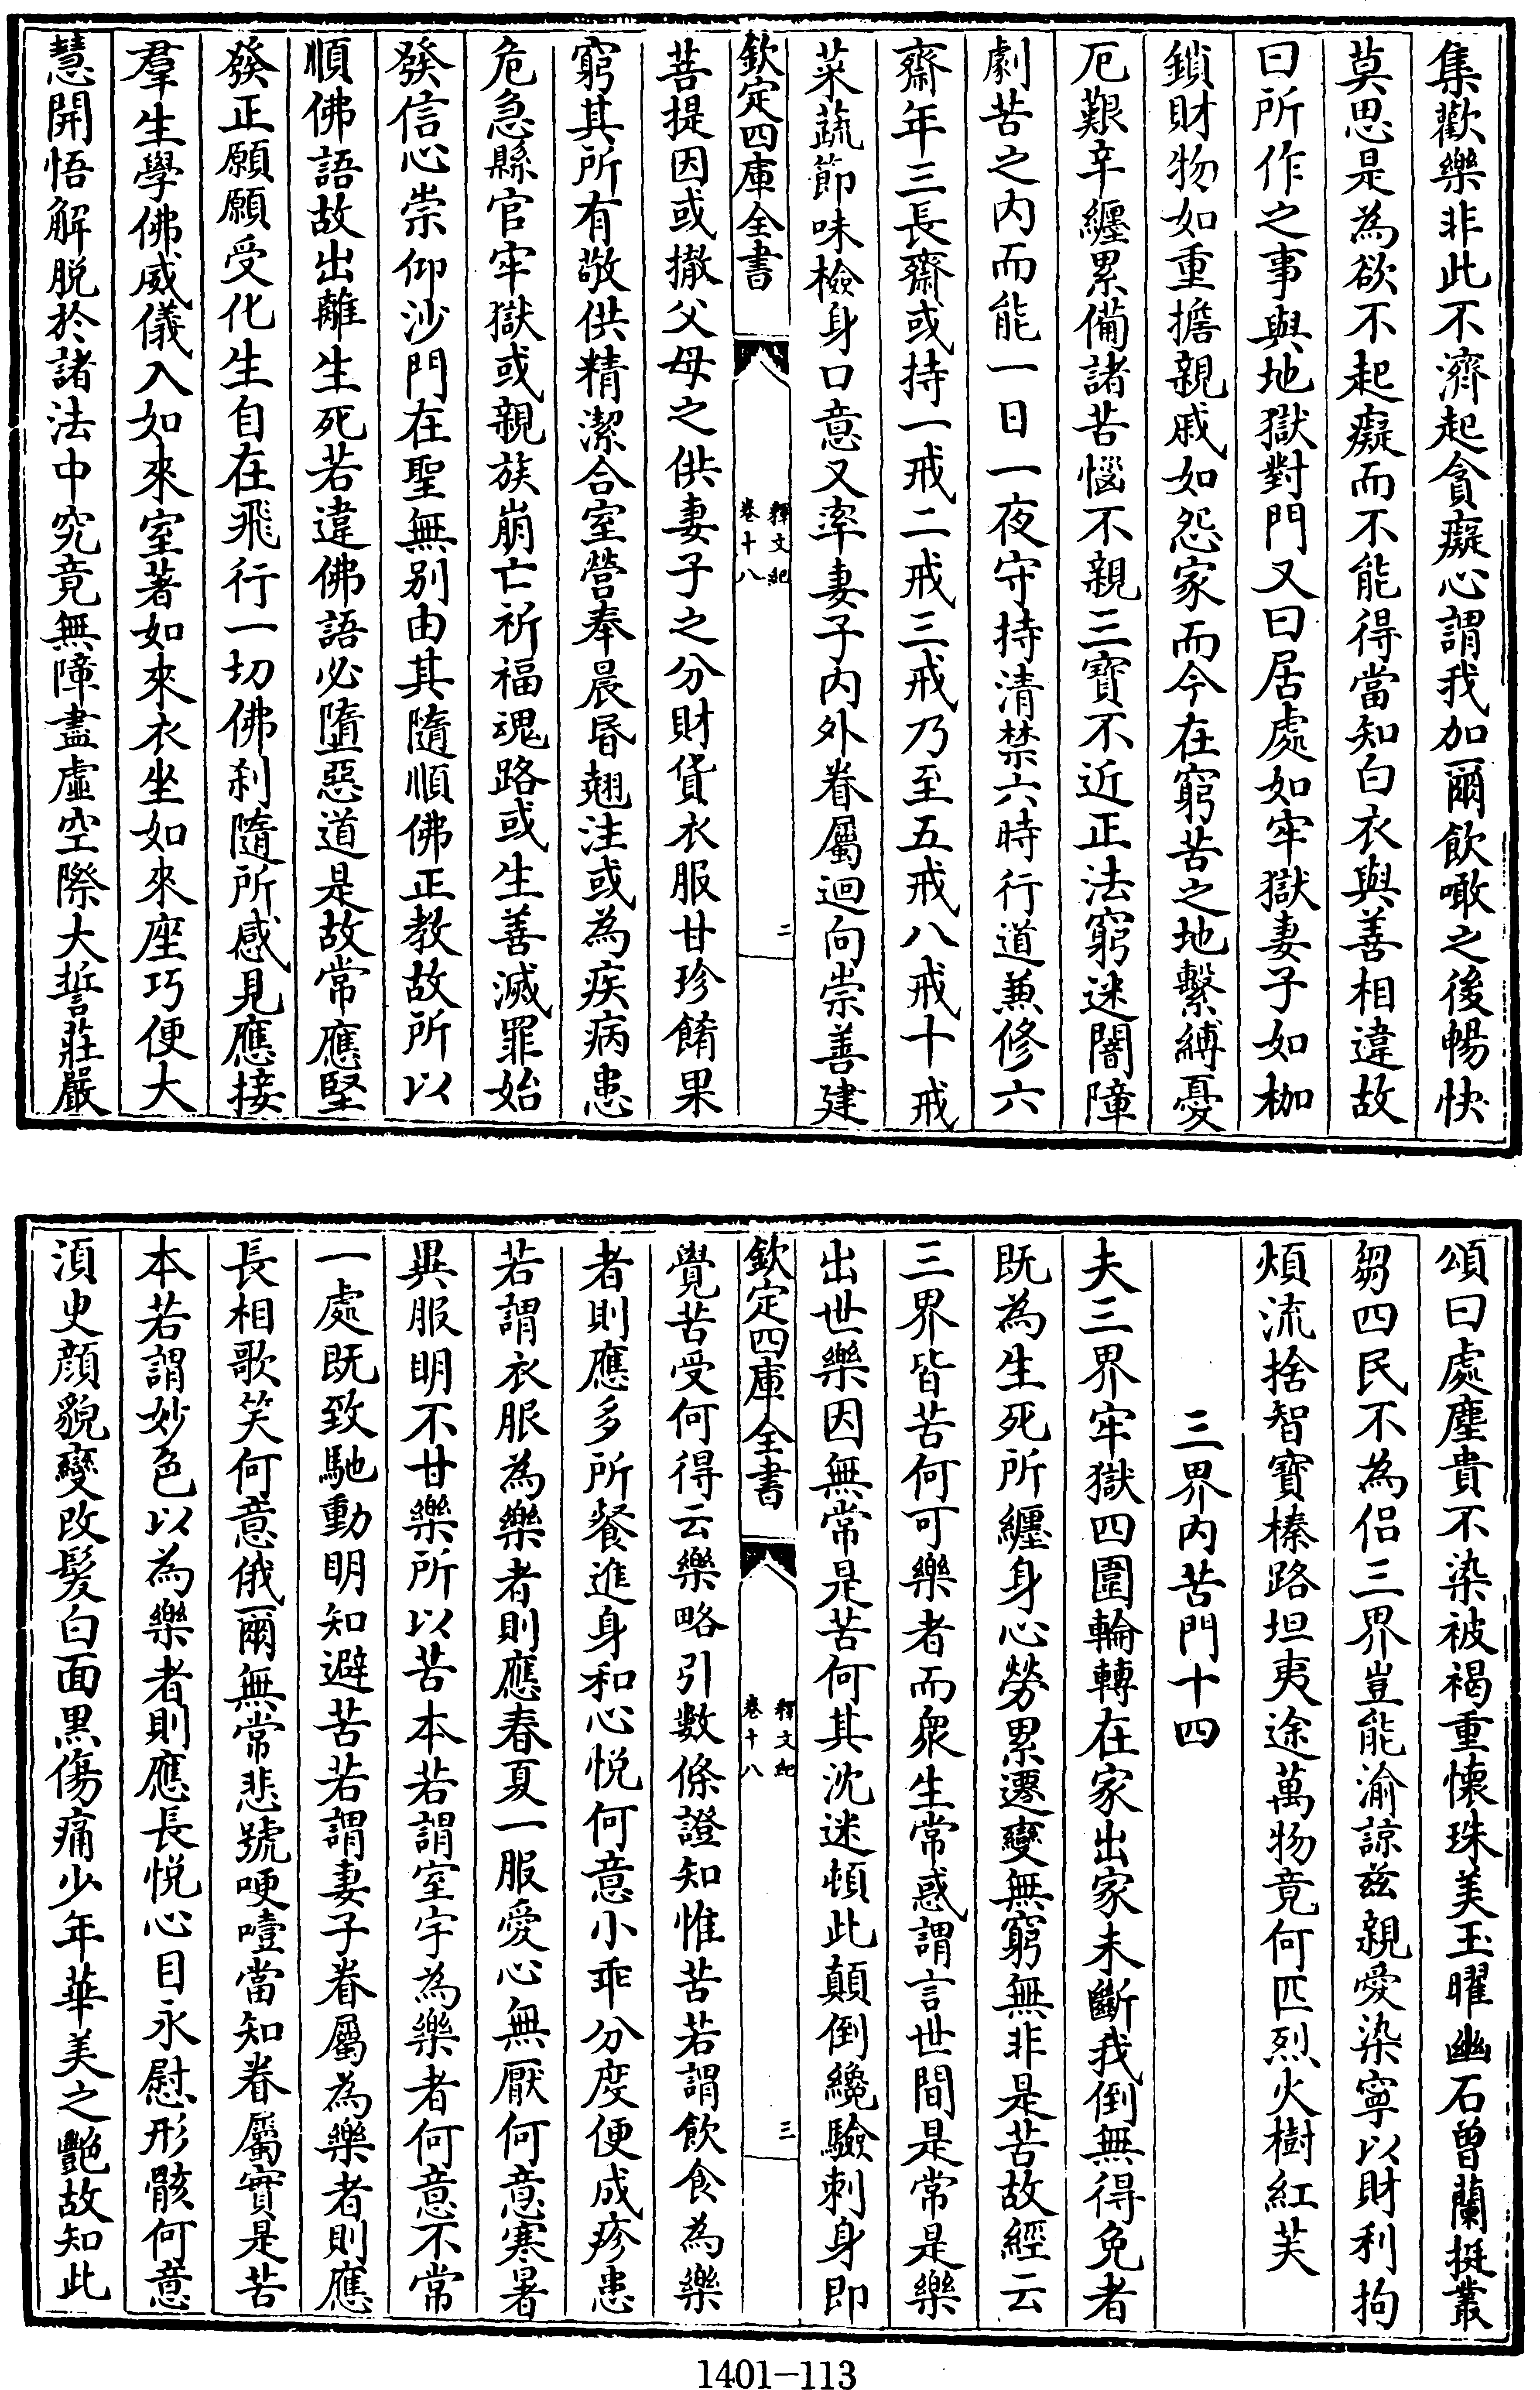 集歡樂非此不濟起貪癡心謂我加爾飲噉之後暢快
莫思是為欲不起癡而不能得當知白衣與善相違故
曰所作之事與地獄對門又曰居處如牢獄妻子如枷
鎖財物如重擔親戚如怨家而今在窮苦之地繫縛憂
厄艱辛纏累備諸苦惱不親三寶不近正法窮迷闇障
劇苦之內而能一日一夜守持清禁六時行道兼修六
齋年三長齋或持一戒二戒三戒乃至五戒八戒十戒
菜蔬節味檢身口意又率妻子內外眷屬迴向崇善建
欽定四庫全書
釋文紀
卷十八
二
菩提因或撤父母之供妻子之分財貨衣服甘珍餚果
窮其所有敬供精潔合室營奉晨昏翹注或為疾病患
危急縣官牢獄或親族崩亡祈福魂路或生善滅罪始
發信心崇仰沙門在聖無别由其隨順佛正教故所以
順佛語故出離生死若違佛語必墮惡道是故常應堅
發正願願受化生自在飛行一切佛刹隨所感見應接
羣生學佛威儀入如來室著如來衣坐如來座巧便大
慧開悟解脫於諸法中究竟無障盡虛空際大誓莊嚴
頌曰處塵貴不染被褐重懷珠美玉曜幽石曾蘭挺叢
芻四民不為侶三界豈能渝諒兹親愛染寧以財利拘
煩流捨智寶榛路坦夷途萬物竟何匹烈火樹紅芙
三界内苦門十四
夫三界牢獄四圍輪轉在家出家未斷我倒無得免者
既為生死所纏身心勞累遷變無窮無非是苦故經云
三界皆苦何可樂者而衆生常惑謂言世間是常是樂
出世樂因無常是苦何其沈迷頓此顛倒纔驗刺身即
欽定四庫全書
釋文紀
卷十八
三
覺苦受何得云樂略引數條證知惟苦若謂飲食為樂
者則應多所餐進身和心悅何意小乖分度便成疹患
若謂衣服為樂者則應春夏一服愛心無厭何意寒暑
異服明不甘樂所以苦本若謂室宇為樂者何意不常
一處既致馳動明知避苦若謂妻子眷屬為樂者則應
長相歌笑何意俄爾無常悲號哽噎當知眷屬實是苦
本若謂妙色以為樂者則應長悅心目永慰形骸何意
須臾顔貌變改髮白面黑傷痛少年華美之艷故知此
1401-113